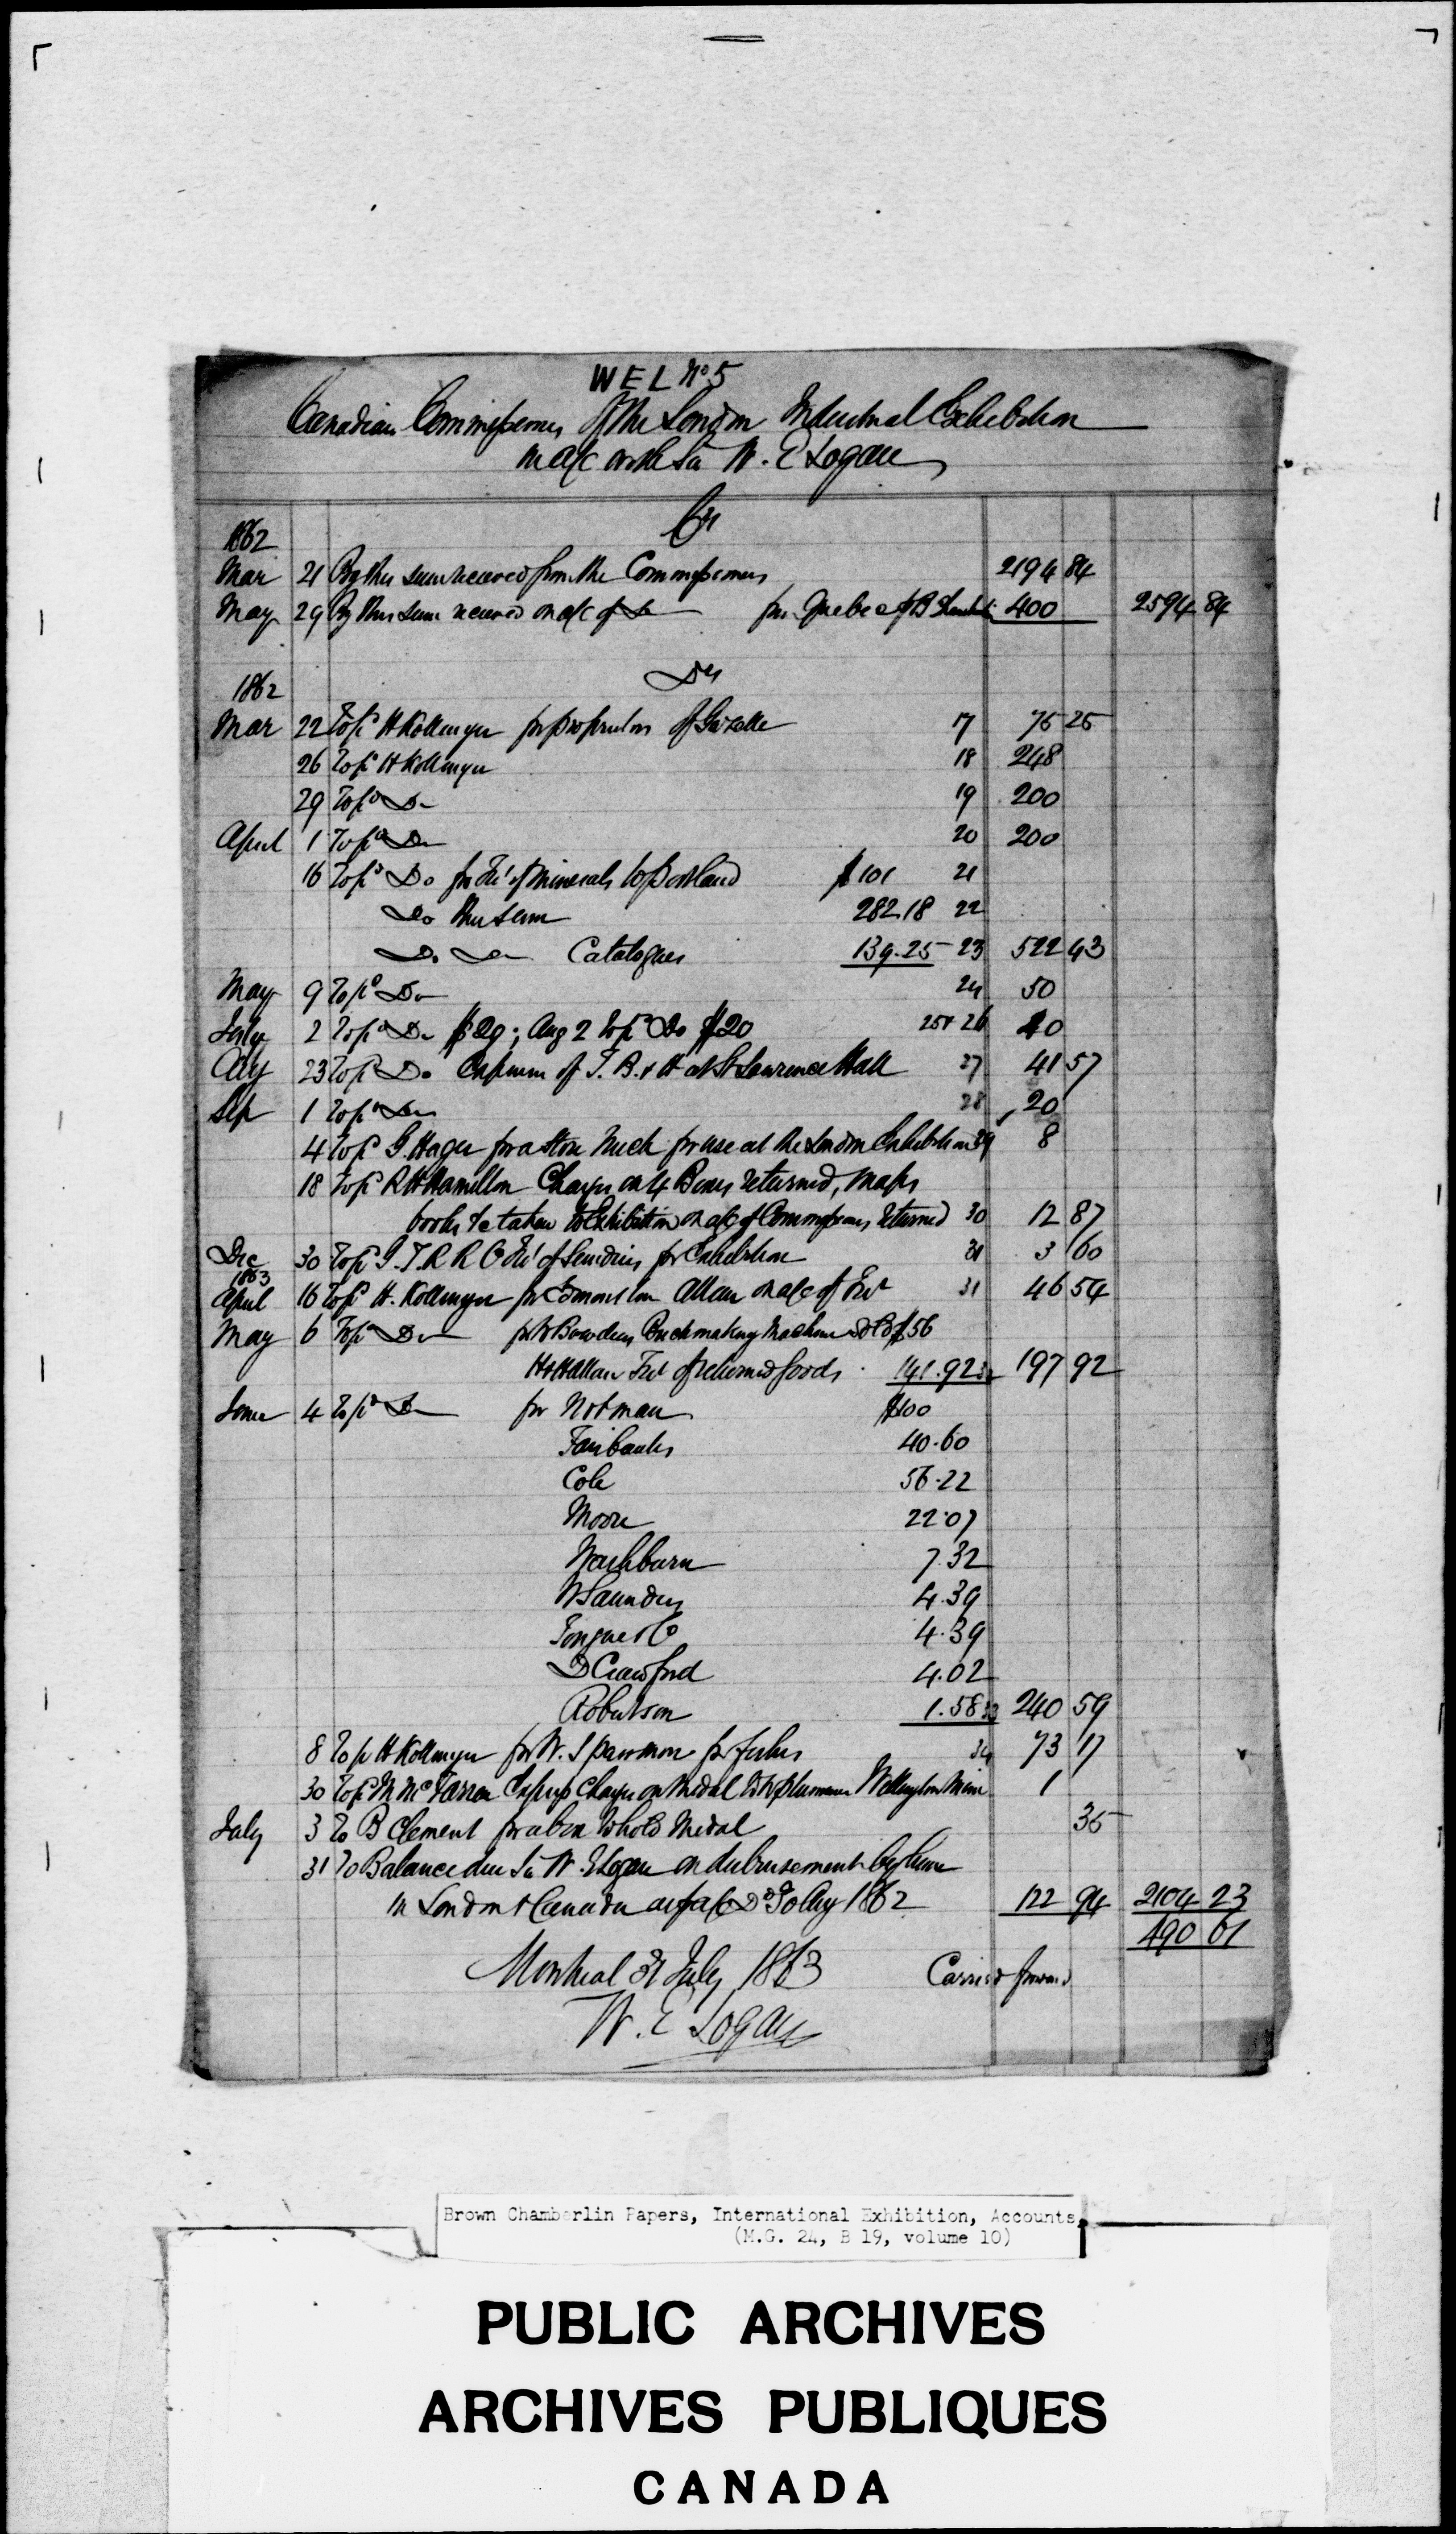 WEL No 5
Canadian Commissioners of the London Industrial Exhibition
in a/c with Sir W. E Logan
Cr
1862
Mar 21 By this sum received from the Commissioners 2194 84
May 29 By this sum received on a/c of Do per Quebec 400 2594 84
Dr
1862
Mar 22 To pd H Kollmyer for proprietors of Gazette 17 75 25
26 To pd H Kollmyer 18 248
29 To pd Do 19 200
April 1 To pd Do 20 200
16 To pd Do for Frt of Minerals to Portland $101 21
Do this sum 282.18 22
Do Do Catalogues 139.25 23 522 43
May 9 To pd Do 24 50
July 2 To pd Do $20; Aug 2 To pd Do $20 25 & 26 40
Aug 23 To pd Do Expenses of T. B. & H at St Lawrence Hall 27 41 57
Sep 1 To pd Do 28 20
4 To pd G. Hager for a Stone for use at the London Exhibition 29 8
18 To pd R H Hamilton Charges on 4 Boxes returned, maps
books &c taken to Exhibition on a/c of Commissioners returned 30 12 87
Dec 30 To pd G. T. R R Co Frt of Sundries for Exhibition 31 3 60
1863
April 16 To pd H. Kollmyer for Edmonstone Allan on a/c of Frt 31 46 54
May 6 To pd Do for Bowdens Brickmaking Machine $56
H & H Allan Frt of returned goods 141.92 32 197 92
June 4 To pd Do for Notman $100
Fairbanks 40.60
Cole 56.22
Moore 22.07
Washburn 7.32
W Saunders 4.39
Tongue & Co 4.39
D Crawford 4.02
Robertson 1.58 33 240 59
8 To pd H Kollmyer for W. Spawnon for fishes 34 73 17
30 To pd M McFarren Express Charges on Medal Wellington Mine 1
July 3 To B Clement for a box to hold Medal 35
31 To Balance due Sir W. E Logan on disbursements by him
in London & Canada as pr a/c Dd 30 Aug 1862 122 94 2104 23
490 61
Montreal 31 July 1863 Carried forward
W. E Logan
Brown Chamberlin Papers, International Exhibition, Accounts,
(M.G. 24, B 19, volume 10)
PUBLIC ARCHIVES
ARCHIVES PUBLIQUES
CANADA